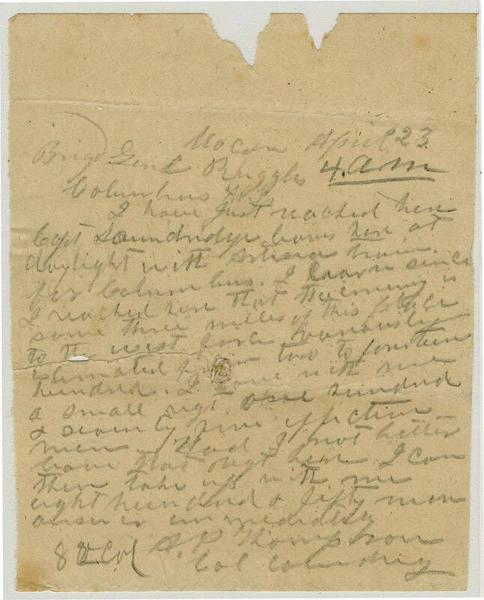 Macon April 23
Brig Genl Ruggles 4. a m
Columbus
I have just reached here
Capt leaves here at
daylight with train
for Columbus. I learn since
I reached here that the enemy is
some three miles of this place
to the west force variously
estimated from two to fourteen
hundred. I have with me
a small regt one hundred
& seventy five effective
men. Had I not better
leave that regt here I can
then take up with me
eight hundred & fifty men
answer immediately
A. P. Thompson
Col